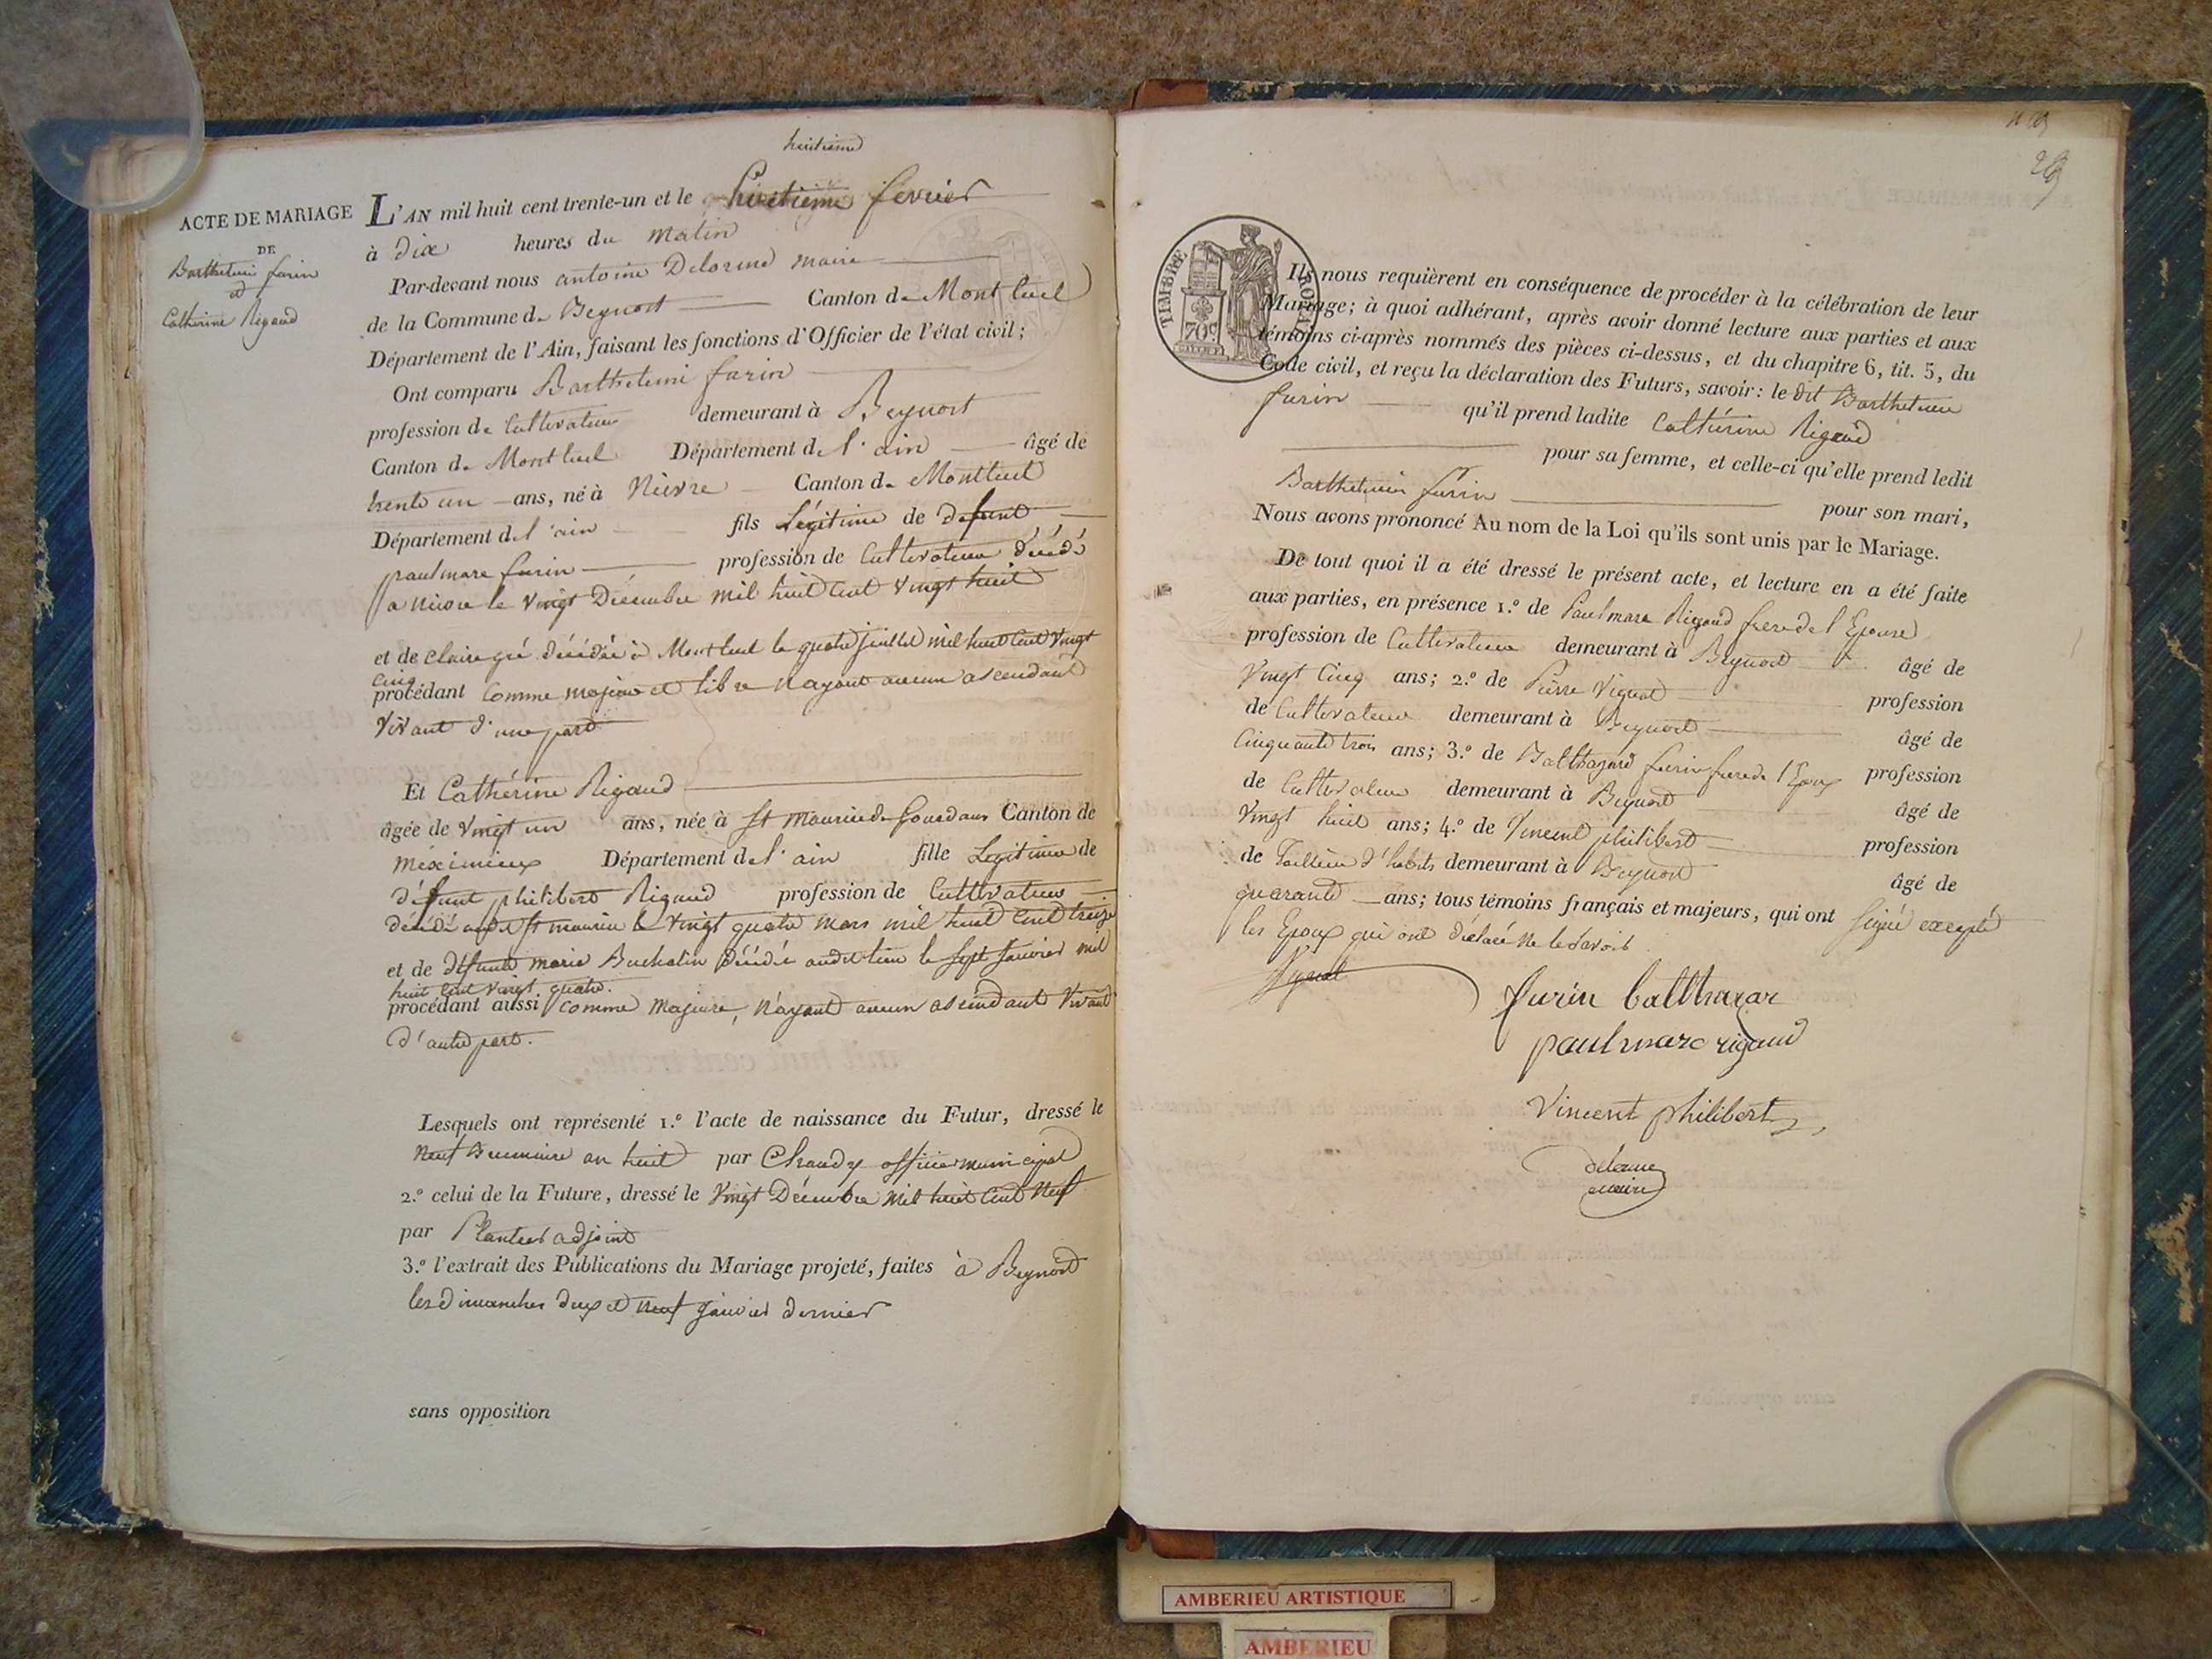 huitieme
ACTE DE MARIAGE
DE
Barthelemi furin
et
Catherine Rigaud
L'AN mil huit cent trente-un et le huitieme fevrier
à Dix heures du matin
Par-devant nous antoine Delorme maire
de la Commune de Beynost Canton de Montluel
Département de l'Ain, faisant les fonctions d'Officier de l'état civil;
Ont comparu Barthelemi furin
profession de Cultivateur demeurant à Beynost
Canton de Montluel Département de l'ain âgé de
trente un ans, né à Nievre Canton de Montluel
Département de l'ain fils Légitime de defunt
paulmarc furin profession de Cultivateur décédé
a le vingt Décembre mil huit Cent Vingt huit
et de claire décédée à Montluel le quatre juillet mil huit Cent Vingt
Cinq
procédant Comme majeur et libre Nayant aucun ascendant
Vivant d'une part
Et Cathérine Rigaud
âgée de Vingt un ans, née à St maurice de Gourdans Canton de
méximieux Département de l'ain fille Légitime de
défunt philibert Rigaud profession de Cultivateur
décédé audit St maurice le Vingt quatre mars mil huit Cent treize
et de defunte marie Buchalin décédée audit lieu le Sept Janvier mil
huit Cent Vingt quatre.
procédant aussi Comme Majeure, N'ayant aucun ascendant Vivant
d'autre part.
Lesquels ont représenté 1.º l'acte de naissance du Futur, dressé le
Neuf Brumaire an huit par Chaudy officier municipal
2.º celui de la Future, dressé le Vingt Décembre Mil huit Cent Neuf
par Plantier adjoint
3.º l'extrait des Publications du Mariage projeté, faites à Beynost
les dimanches deux et Neuf Janvier dernier
sans opposition
29
TIMBRE ROYAL
70 C
Ils nous requièrent en conséquence de procéder à la célébration de leur
Mariage; à quoi adhérant, après avoir donné lecture aux parties et aux
témoins ci-après nommés des pièces ci-dessus, et du chapitre 6, tit. 5, du
Code civil, et reçu la déclaration des Futurs, savoir: le dit Barthelemi
furin qu'il prend ladite Cathérine Rigaud
pour sa femme, et celle-ci qu'elle prend ledit
Barthelemi furin pour son mari,
Nous avons prononcé Au nom de la Loi qu'ils sont unis par le Mariage.
De tout quoi il a été dressé le présent acte, et lecture en a été faite
aux parties, en présence 1.º de Paulmarc Rigaud frere de l'Epouse
profession de Cultivateur demeurant à Beynost âgé de
Vingt Cinq ans; 2.º de Pierre Vignat profession
de Cultivateur demeurant à Beynost âgé de
Cinquante trois ans; 3.º de Balthazard furin frere de l'Epoux profession
de Cultivateur demeurant à Beynost âgé de
Vingt huit ans; 4.º de Vincent philibert profession
de Tailleur d'habits demeurant à Beynost âgé de
quarante ans; tous témoins français et majeurs, qui ont Signé excepté
les Epoux qui ont déclaré Ne le Savoir
Vignat
furin balthazar
paulmarc rigaud
Vincent philibert
delorme
maire
AMBERIEU ARTISTIQUE
AMBERIEU